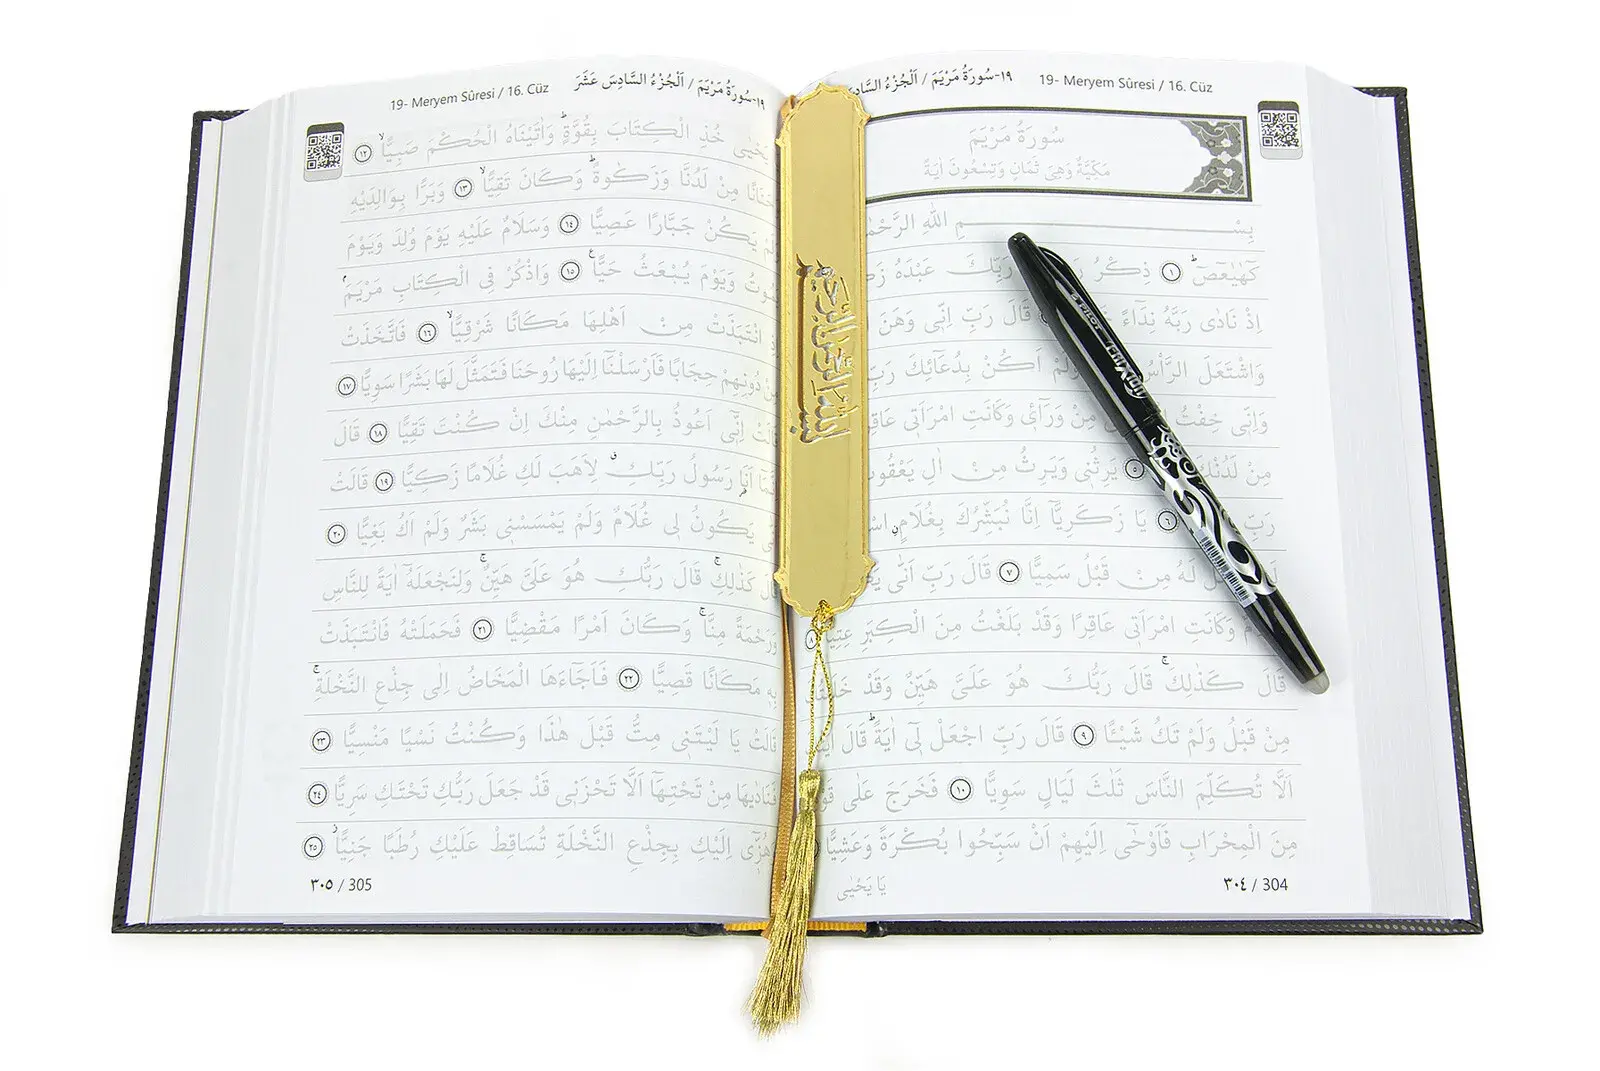 19- Meryem Sûresi / 16. Cüz ١٩-سُورَةُ مَرْيَمَ / اَلْجُزْءُ
سُورَةُ مَرْيَمَ
مَكِّيَّةٌ وَهِيَ ثَمَانٍ وَتِسْعُونَ اٰيَةً
بِسْمِ اللّٰهِ
كٓهٰيٰعٓصٓ ۚ ١ ذِكْرُ رَبِّكَ عَبْدَهُ
اِذْ نَادٰى رَبَّهُ نِدَٓاءً قَالَ رَبِّ اِنّ۪ي وَهَنَ
وَاشْتَعَلَ الرَّأْسُ وَلَمْ اَكُنْ بِدُعَٓائِكَ رَبِّ
وَاِنّ۪ي خِفْتُ مِنْ وَرَٓاء۪ي وَكَانَتِ امْرَاَت۪ي
مِنْ لَدُنْكَ ٥ يَرِثُن۪ي وَيَرِثُ مِنْ اٰلِ يَعْقُوبَ
رَبِّ ٦ يَا زَكَرِيَّٓا اِنَّا نُبَشِّرُكَ بِغُلَامٍۨ
لَهُ مِنْ قَبْلُ سَمِيًّا ٧ قَالَ رَبِّ اَنّٰى
وَكَانَتِ امْرَاَت۪ي عَاقِرًا وَقَدْ بَلَغْتُ مِنَ الْكِبَرِ عِتِيًّا ٨
قَالَ كَذٰلِكَۚ قَالَ رَبُّكَ هُوَ عَلَيَّ هَيِّنٌ وَقَدْ
مِنْ قَبْلُ وَلَمْ تَكُ شَيْـًٔا ٩ قَالَ رَبِّ اجْعَلْ ل۪ٓي اٰيَةًۜ قَالَ
اَلَّا تُكَلِّمَ النَّاسَ ثَلٰثَ لَيَالٍ سَوِيًّا ١٠ فَخَرَجَ عَلٰى
مِنَ الْمِحْرَابِ فَاَوْحٰٓى اِلَيْهِمْ اَنْ سَبِّحُوا بُكْرَةً وَعَشِيًّا
يَا يَحْيٰى
٣٠٤ / 304
19- Meryem Sûresi / 16. Cüz ١٩-سُورَةُ مَرْيَمَ / اَلْجُزْءُ السَّادِسَ عَشَرَ
يَحْيٰى خُذِ الْكِتَابَ بِقُوَّةٍۜ وَاٰتَيْنَاهُ الْحُكْمَ صَبِيًّاۙ ١٢
مِنْ لَدُنَّا وَزَكٰوةًۜ وَكَانَ تَقِيًّاۙ ١٣ وَبَرًّا بِوَالِدَيْهِ
يَكُنْ جَبَّارًا عَصِيًّا ١٤ وَسَلَامٌ عَلَيْهِ يَوْمَ وُلِدَ وَيَوْمَ
وَيَوْمَ يُبْعَثُ حَيًّا۟ ١٥ وَاذْكُرْ فِي الْكِتَابِ مَرْيَمَۢ
انْتَبَذَتْ مِنْ اَهْلِهَا مَكَانًا شَرْقِيًّاۙ ١٦ فَاتَّخَذَتْ
دُونِهِمْ حِجَابًا فَاَرْسَلْنَٓا اِلَيْهَا رُوحَنَا فَتَمَثَّلَ لَهَا بَشَرًا سَوِيًّا ١٧
اِنّ۪ٓي اَعُوذُ بِالرَّحْمٰنِ مِنْكَ اِنْ كُنْتَ تَقِيًّا ١٨ قَالَ
اَنَا۬ رَسُولُ رَبِّكِۗ لِاَهَبَ لَكِ غُلَامًا زَكِيًّا ١٩ قَالَتْ
يَكُونُ ل۪ي غُلَامٌ وَلَمْ يَمْسَسْن۪ي بَشَرٌ وَلَمْ اَكُ بَغِيًّا ٢٠
كَذٰلِكِۚ قَالَ رَبُّكِ هُوَ عَلَيَّ هَيِّنٌۚ وَلِنَجْعَلَهُٓ اٰيَةً لِلنَّاسِ
وَرَحْمَةً مِنَّاۚ وَكَانَ اَمْرًا مَقْضِيًّا ٢١ فَحَمَلَتْهُ فَانْتَبَذَتْ
بِه۪ مَكَانًا قَصِيًّا ٢٢ فَاَجَٓاءَهَا الْمَخَاضُ اِلٰى جِذْعِ النَّخْلَةِۚ
قَالَتْ يَا لَيْتَن۪ي مِتُّ قَبْلَ هٰذَا وَكُنْتُ نَسْيًا مَنْسِيًّا ٢٣
فَنَادٰيهَا مِنْ تَحْتِهَٓا اَلَّا تَحْزَن۪ي قَدْ جَعَلَ رَبُّكِ تَحْتَكِ سَرِيًّا ٢٤
وَهُزّ۪ٓي اِلَيْكِ بِجِذْعِ النَّخْلَةِ تُسَاقِطْ عَلَيْكِ رُطَبًا جَنِيًّاۘ ٢٥
٣٠٥ / 305
بسم الله الرحمن الرحيم
PILOT
FRIXION